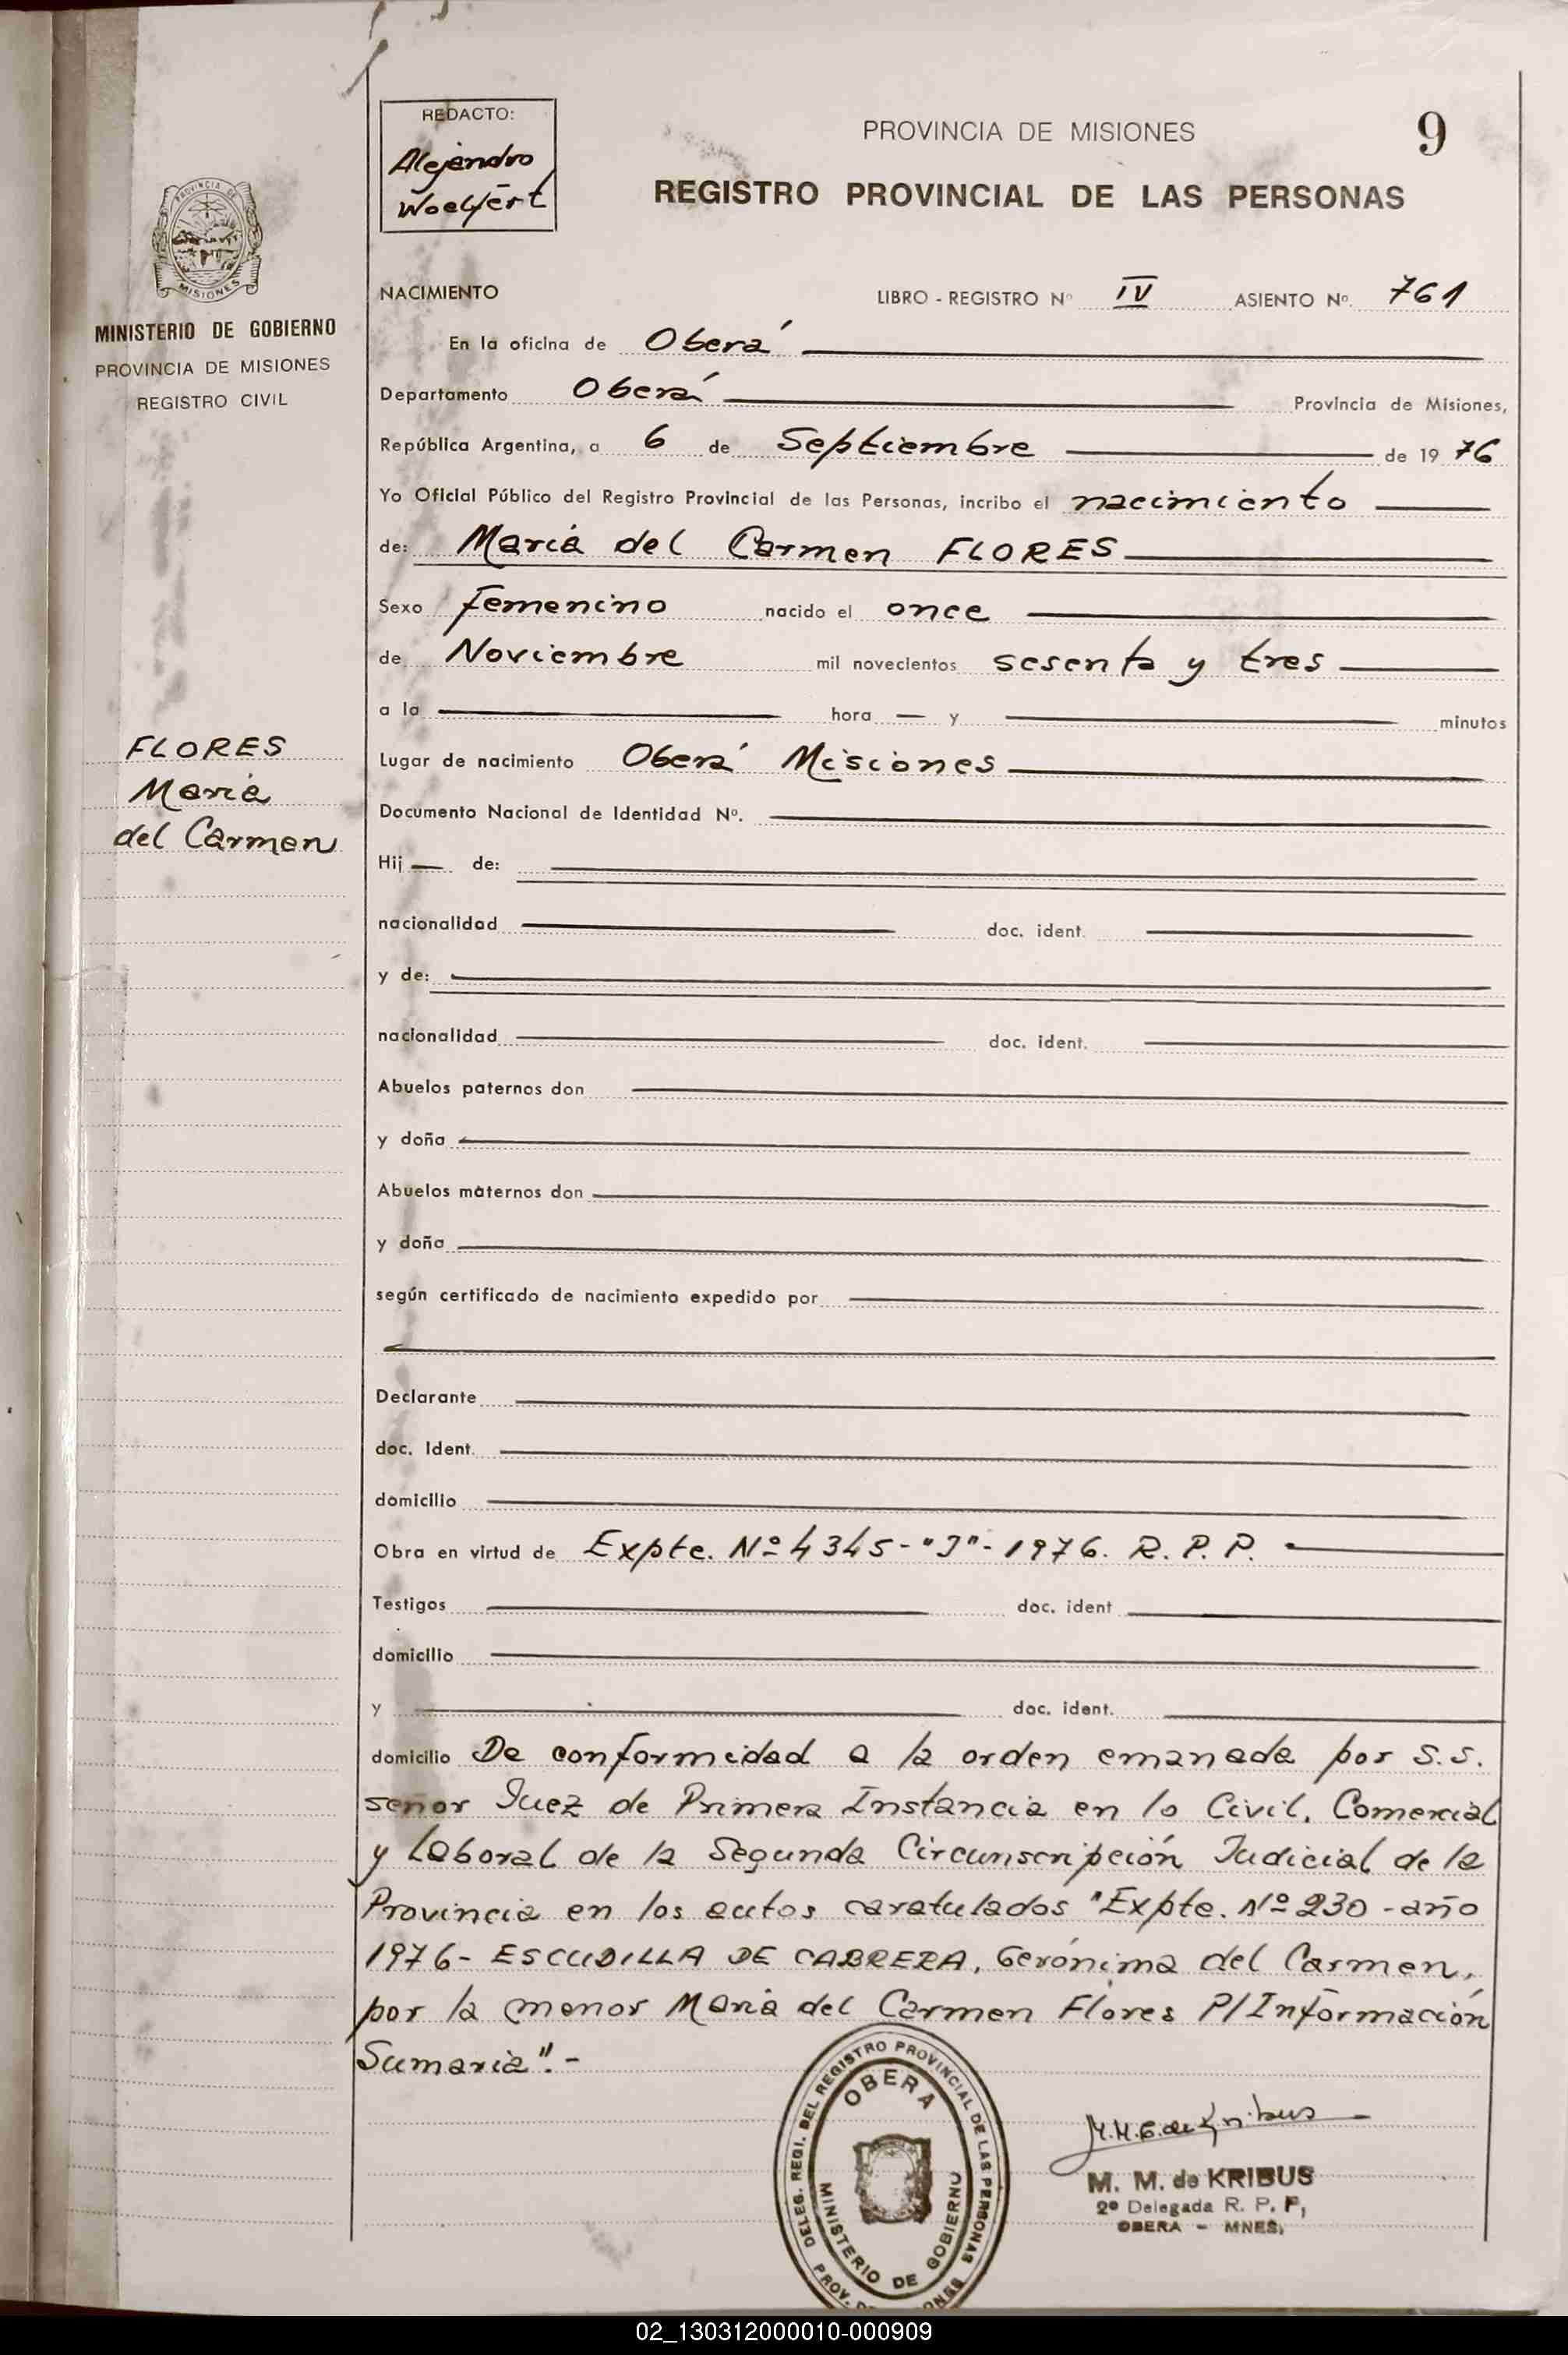 REDACTO:
Alejandro
Woelfert
PROVINCIA DE MISIONES
9
REGISTRO PROVINCIAL DE LAS PERSONAS
PROVINCIA DE
MISIONES
MINISTERIO DE GOBIERNO
PROVINCIA DE MISIONES
REGISTRO CIVIL
FLORES
María
del Carmen
NACIMIENTO LIBRO - REGISTRO Nº IV ASIENTO Nº. 761
En la oficina de Oberá
Departamento Oberá Provincia de Misiones,
República Argentina, a 6 de Septiembre de 19 76
Yo Oficial Público del Registro Provincial de las Personas, incribo el nacimiento
de: María del Carmen FLORES
Sexo femenino nacido el once
de Noviembre mil novecientos sesenta y tres
a la — hora — y — minutos
Lugar de nacimiento Oberá Misiones
Documento Nacional de Identidad Nº.
Hij — de:
nacionalidad doc. ident.
y de:
nacionalidad doc. ident.
Abuelos paternos don
y doña
Abuelos maternos don
y doña
según certificado de nacimiento expedido por
Declarante
doc. Ident.
domicilio
Obra en virtud de Expte. Nº 4345-"J"-1976. R. P. P.
Testigos doc. ident
domicilio
y doc. ident.
domicilio De conformidad a la orden emanada por S.S.
señor Juez de Primera Instancia en lo Civil, Comercial
y Laboral de la Segunda Circunscripción Judicial de la
Provincia en los autos caratulados "Expte. Nº 230 -año
1976- ESCUDILLA DE CABRERA, Gerónima del Carmen,
por la menor María del Carmen Flores P/Información
Sumaria".-
DELEG. REGI. DEL REGISTRO PROVINCIAL DE LAS PERSONAS
OBERA
MINISTERIO DE GOBIERNO
M. M. de KRIBUS
2º Delegada R. P. P,
OBERA - MNES,
02_130312000010-000909